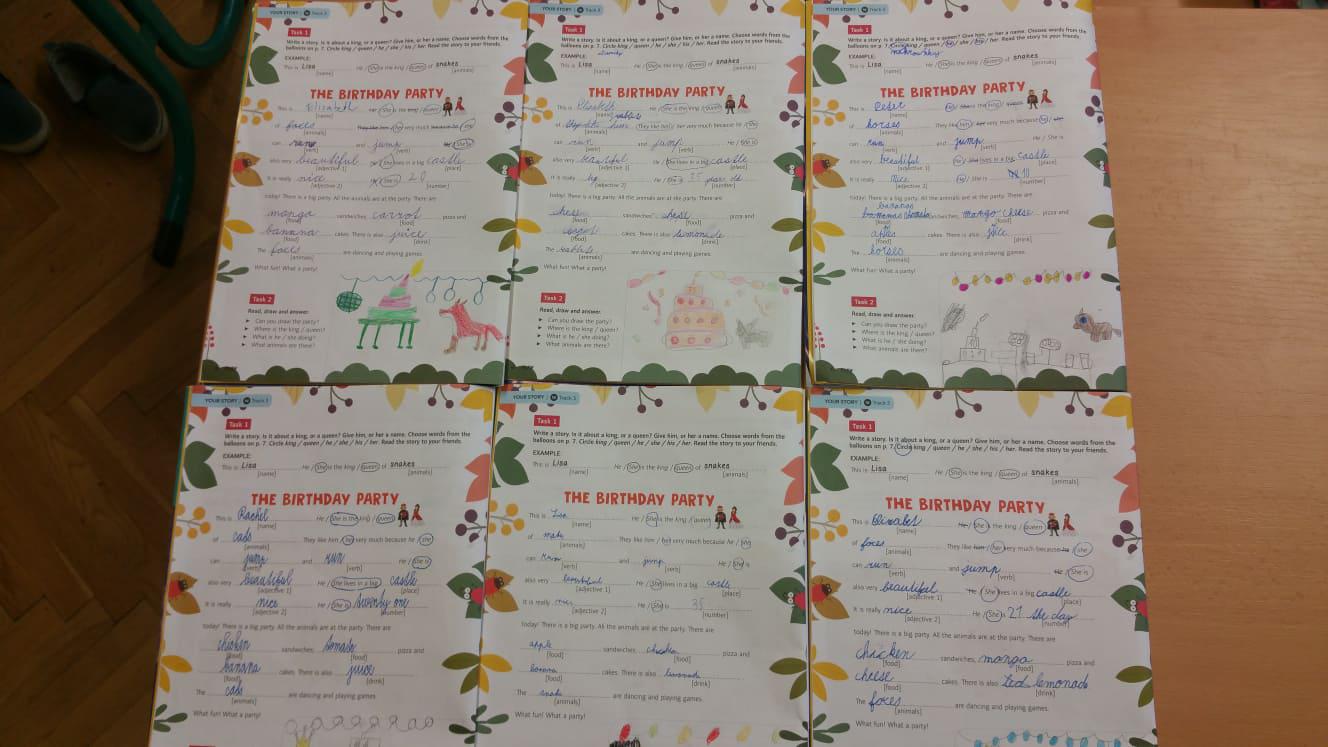 YOUR STORY Track 3
Task 1
Write a story. Is it about a king, or a queen? Give him, or her a name. Choose words from the
balloons on p. 7. Circle king / queen / he / she / his / her. Read the story to your friends.
EXAMPLE:
This is Lisa He / She is the king / queen of snakes
[name] [animals]
THE BIRTHDAY PARTY
This is Elizabeth He / She is the king / queen
[name]
of foxes They like him / her very much because he / she
[animals]
can run and jump He / She is
[verb] [verb]
also very beautiful He / She lives in a big castle
[adjective 1] [place]
It is really nice He / She is 20
[adjective 2] [number]
today! There is a big party. All the animals are at the party. There are
mango sandwiches carrot pizza and
[food] [food]
banana cakes. There is also juice
[food] [drink]
The foxes are dancing and playing games.
[animals]
What fun! What a party!
Task 2
Read, draw and answer.
Can you draw the party?
Where is the king / queen?
What is he / she doing?
What animals are there?
YOUR STORY Track 3
Task 1
Write a story. Is it about a king, or a queen? Give him, or her a name. Choose words from the
balloons on p. 7. Circle king / queen / he / she / his / her. Read the story to your friends.
EXAMPLE:
This is Lisa He / She is the king / queen of snakes
[name] [animals]
THE BIRTHDAY PARTY
This is He / She is the king / queen
[name]
of They like him / her very much because he / she
[animals]
can run and jump He / She is
[verb] [verb]
also very beautiful He / She lives in a big castle
[adjective 1] [place]
It is really big He / She is 25 year old
[adjective 2] [number]
today! There is a big party. All the animals are at the party. There are
sandwiches pizza and
[food] [food]
cakes. There is also
[food] [drink]
The are dancing and playing games.
[animals]
What fun! What a party!
Task 2
Read, draw and answer.
Can you draw the party?
Where is the king / queen?
What is he / she doing?
What animals are there?
YOUR STORY Track 3
Task 1
Write a story. Is it about a king, or a queen? Give him, or her a name. Choose words from the
balloons on p. 7. Circle king / queen / he / she / his / her. Read the story to your friends.
EXAMPLE:
This is Lisa He / She is the king / queen of snakes
[name] [animals]
THE BIRTHDAY PARTY
This is He / She is the king / queen
of horses They like him / her very much because he / she
[animals]
can run and jump He / She is
[verb] [verb]
also very beautiful He / She lives in a big castle
[adjective 1] [place]
It is really nice He / She is 10
[adjective 2] [number]
today! There is a big party. All the animals are at the party. There are
banana
sandwiches, mango cheese pizza and
[food] [food]
cakes. There is also
[food] [drink]
The horses are dancing and playing games.
[animals]
What fun! What a party!
Task 2
Read, draw and answer.
Can you draw the party?
Where is the king / queen?
What is he / she doing?
What animals are there?
YOUR STORY Track 3
Task 1
Write a story. Is it about a king, or a queen? Give him, or her a name. Choose words from the
balloons on p. 7. Circle king / queen / he / she / his / her. Read the story to your friends.
EXAMPLE:
This is Lisa He / She is the king / queen of snakes
[name] [animals]
THE BIRTHDAY PARTY
This is Rachel He / She is the king / queen
[name]
of cats They like him / her very much because he / she
[animals]
can jump and run He / She is
[verb] [verb]
also very beautiful He / She lives in a big castle
[adjective 1] [place]
It is really nice He / She is twenty one
[adjective 2] [number]
today! There is a big party. All the animals are at the party. There are
chicken sandwiches tomato pizza and
[food] [food]
banana cakes. There is also juice
[food] [drink]
The cats are dancing and playing games
[animals]
What fun! What a party!
YOUR STORY Track 3
Task 1
Write a story. Is it about a king, or a queen? Give him, or her a name. Choose words from the
balloons on p. 7. Circle king / queen / he / she / his / her. Read the story to your friends.
EXAMPLE:
This is Lisa He / She is the king / queen of snakes
[name] [animals]
THE BIRTHDAY PARTY
This is Lisa He / She is the king / queen
[name]
of They like him / her very much because he / she
[animals]
can and jump He / She is
[verb] [verb]
also very beautiful He / She lives in a big castle
[adjective 1] [place]
It is really He / She is 35
[adjective 2] [number]
today! There is a big party. All the animals are at the party. There are
apple sandwiches, chicken pizza and
[food] [food]
banana cakes. There is also lemonade
[food] [drink]
The snake are dancing and playing games.
[animals]
What fun! What a party!
YOUR STORY Track 3
Task 1
Write a story. Is it about a king, or a queen? Give him, or her a name. Choose words from the
balloons on p. 7. Circle king / queen / he / she / his / her. Read the story to your friends.
EXAMPLE:
This is Lisa He / She is the king / queen of snakes
[name] [animals]
THE BIRTHDAY PARTY
This is He / She is the king / queen
[name]
of foxes They like him / her very much because he / she
[animals]
can run and jump He / She is
[verb] [verb]
also very beautiful He / She lives in a big castle
[adjective 1] [place]
It is really nice He / She is 21 the day
[adjective 2] [number]
today! There is a big party. All the animals are at the party. There are
chicken sandwiches, mango pizza and
[food] [food]
cheese cakes. There is also lemonad
[food] [drink]
The foxes are dancing and playing games.
[animals]
What fun! What a party!